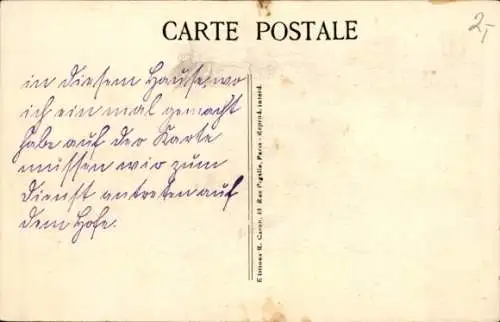 CARTE POSTALE
2,-
in diesem Hause, wo
ich ein mal gemacht
habe auf der Karte
müssen wir zum
Dienst antreten auf
dem Hofe.
Editions R. Caron, 19 Rue Pigalle, Paris - Reprod. interd.